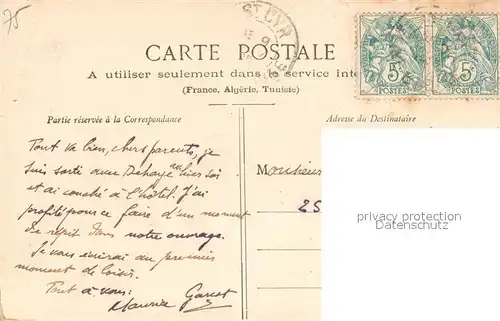 75
ST CYR
CARTE POSTALE
A utiliser seulement dans le service inte
(France, Algérie, Tunisie)
5 5
POSTES POSTES
Partie réservée à la Correspondance
Adresse du Destinataire
Tout va bien, chers parents, je
suis sorti avec Dehaye hier soir
et ai couché à l'hôtel. J'ai
profité pour ce faire d'un moment
de répit dans notre ouvrage.
Je vous écrirai au premier
moment de loisir.
Tout à vous :
Maurice
Monsieur
25
privacy protection
Datenschutz